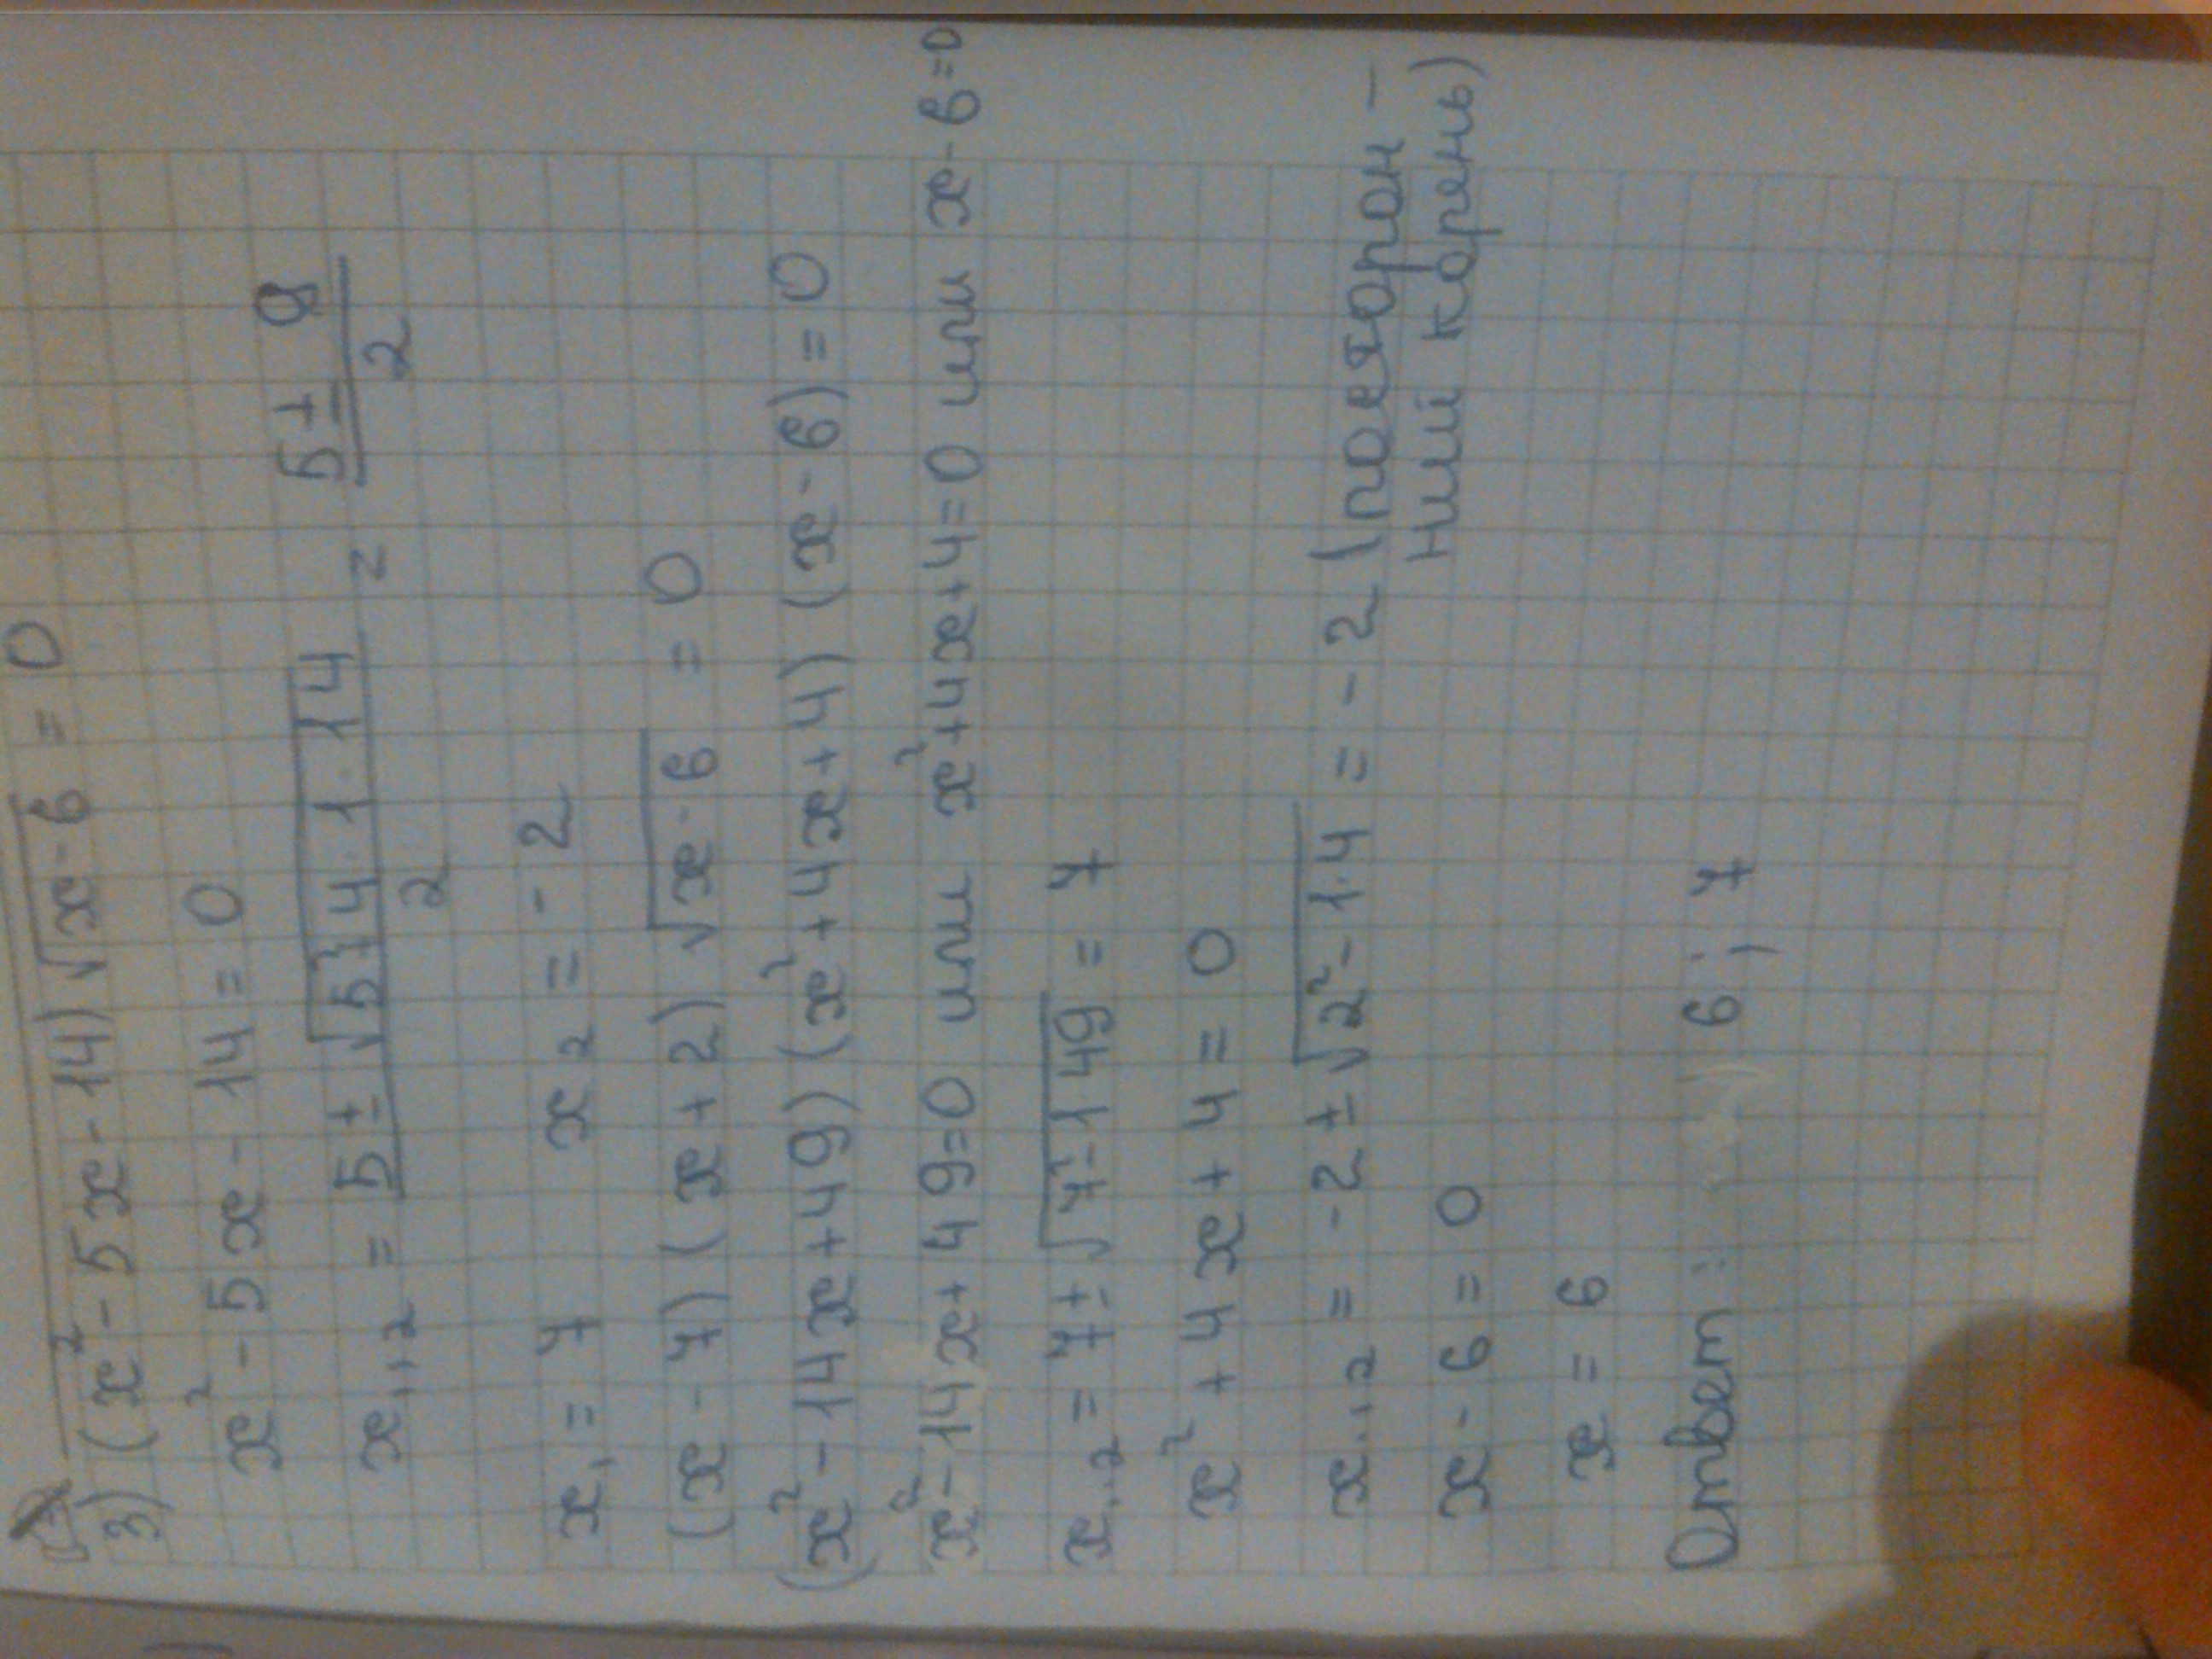 3) (x² - 5x - 14) √x - 6 = 0
x² - 5x - 14 = 0
x₁,₂ = 5 ± √5² 4 · 1 · 14 / 2 = 5 ± 9 / 2
x₁ = 7 x₂ = - 2
(x - 7) (x + 2) √x - 6 = 0
(x² - 14x + 49) (x² + 4x + 4) (x - 6) = 0
x² - 14x + 49 = 0 или x² + 4x + 4 = 0 или x - 6 = 0
x₁,₂ = 7 ± √7² - 1 · 49 = 7
x² + 4x + 4 = 0
x₁,₂ = - 2 ± √2² - 1 · 4 = - 2 (посторон -
ний корень)
x - 6 = 0
x = 6
Ответ : 6 ; 7